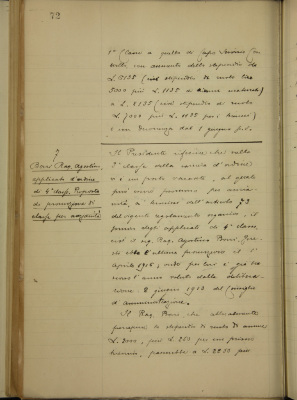 72
1ª Classe a quello di Capo Servizio
con aumento dello stipendio da
L. 7135 (cioè stipendio di ruolo lire
più L. 1135 di aumenti)
a L. 8135 (cioè stipendio di ruolo
L. 7000 più L. 1135 per aumenti)
e con decorrenza dal 1 giugno
7
Boni Rag. Agostino,
applicato d'ordine
di 4ª classe. Proposta
di promozione di
classe per anzianità
Il Presidente riferisce che nella
classe della carriera d'ordine
v'è un posto vacante, al quale
può venir promosso per anzia-
nità, a termini dell'articolo 73
del vigente regolamento organico, il
primo degli applicati di 4ª classe,
cioè il sig. Rag. Agostino Boni. Que-
sti ebbe l'ultima promozione il 1°
Aprile 1906; onde per lui è già tra-
scorso l'anno voluto dalla delibera-
zione 2 giugno 1903 del Consiglio
d'amministrazione.
Il Rag. Boni, che attualmente
percepisce lo stipendio di ruolo di annue
L. 2000, più L. 250 per un primo
aumento, passerebbe a L. 2250 più